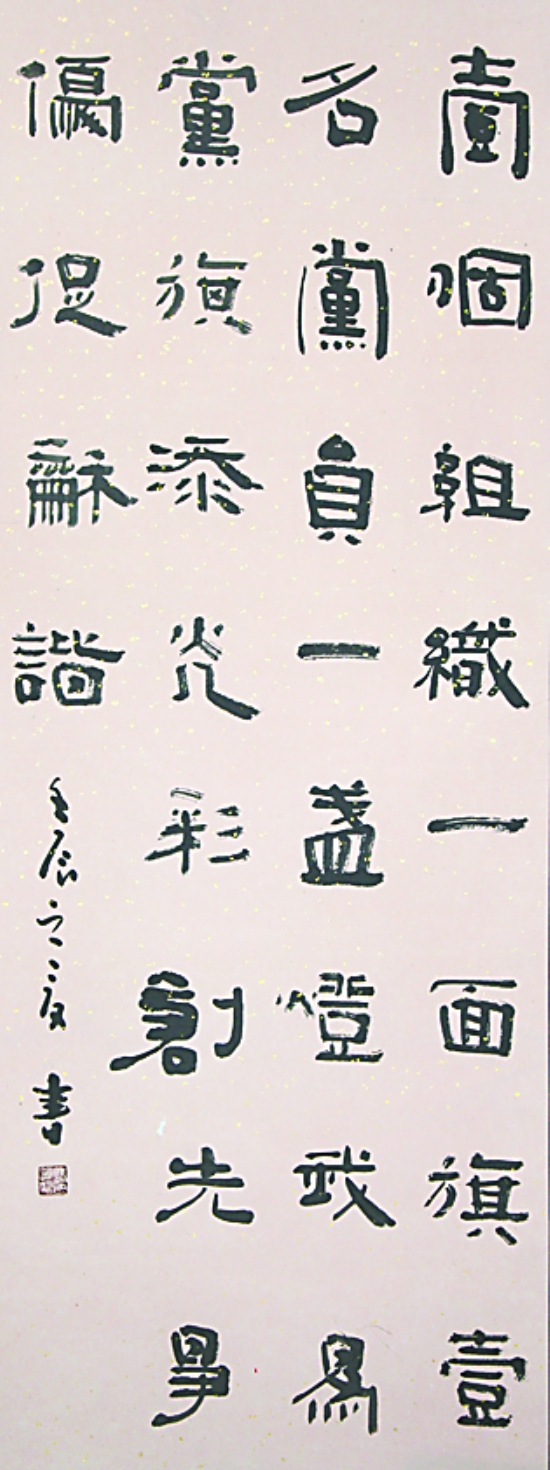 壹個組織一面旗壹
名黨員一盞燈我爲
黨旗添光彩創先爭
優促龢諧
壬辰之夏 書